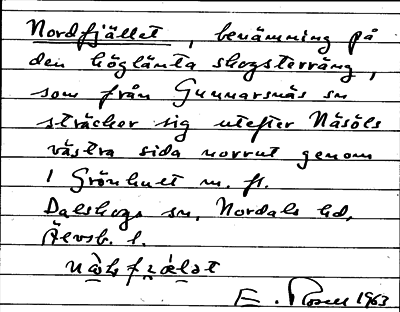 Nordfjället, benämning på
den höglänta skogsterräng,
som från Gunnarsnäs sn
sträcker sig utefter Näsöls
västra sida norrut genom
i Grönhult m. fl.
Dalskogs sn, Nordals hd,
Älvsb. l.
E. Rosell 1963